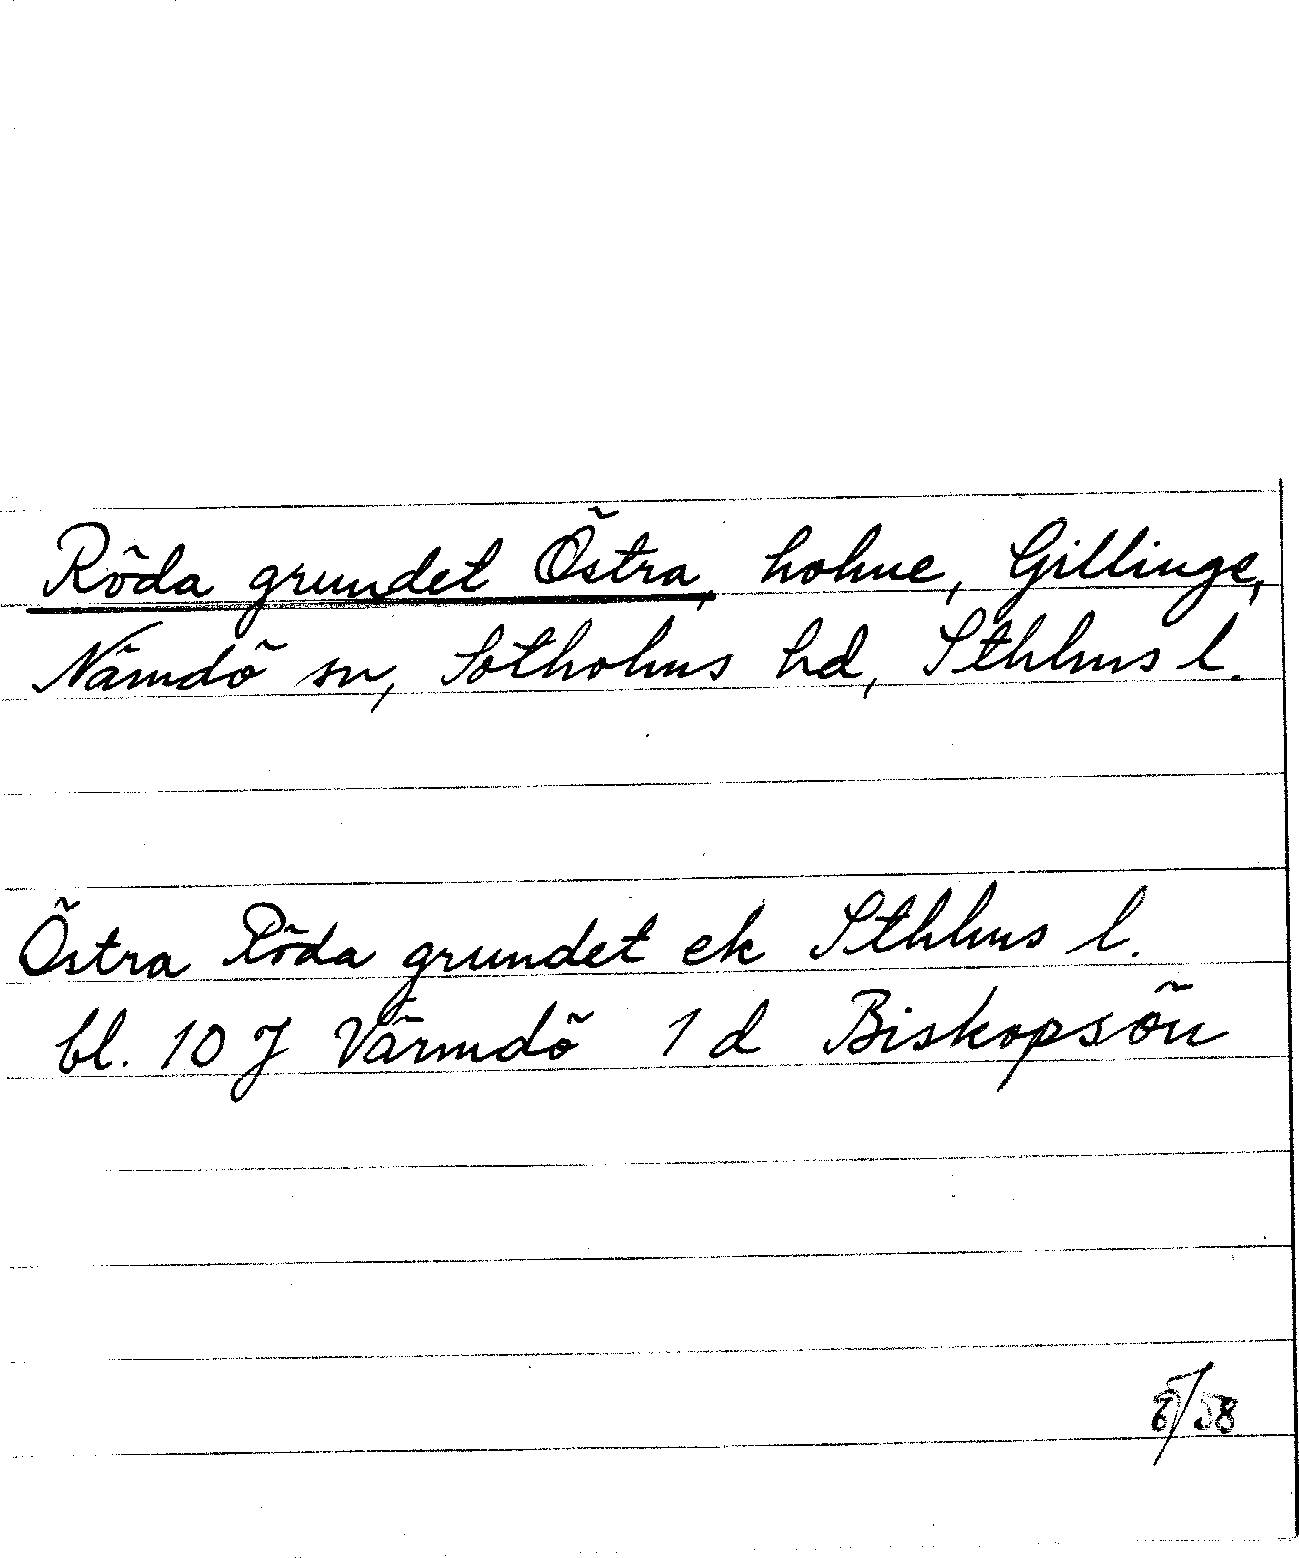 Röda grundet Östra, holme, Gillinge,
Nämdö sn, Sotholms hd, Sthlms l.
Östra Röda grundet ek Sthlms l.
bl. 10 J Värmdö 1 d Biskopsön